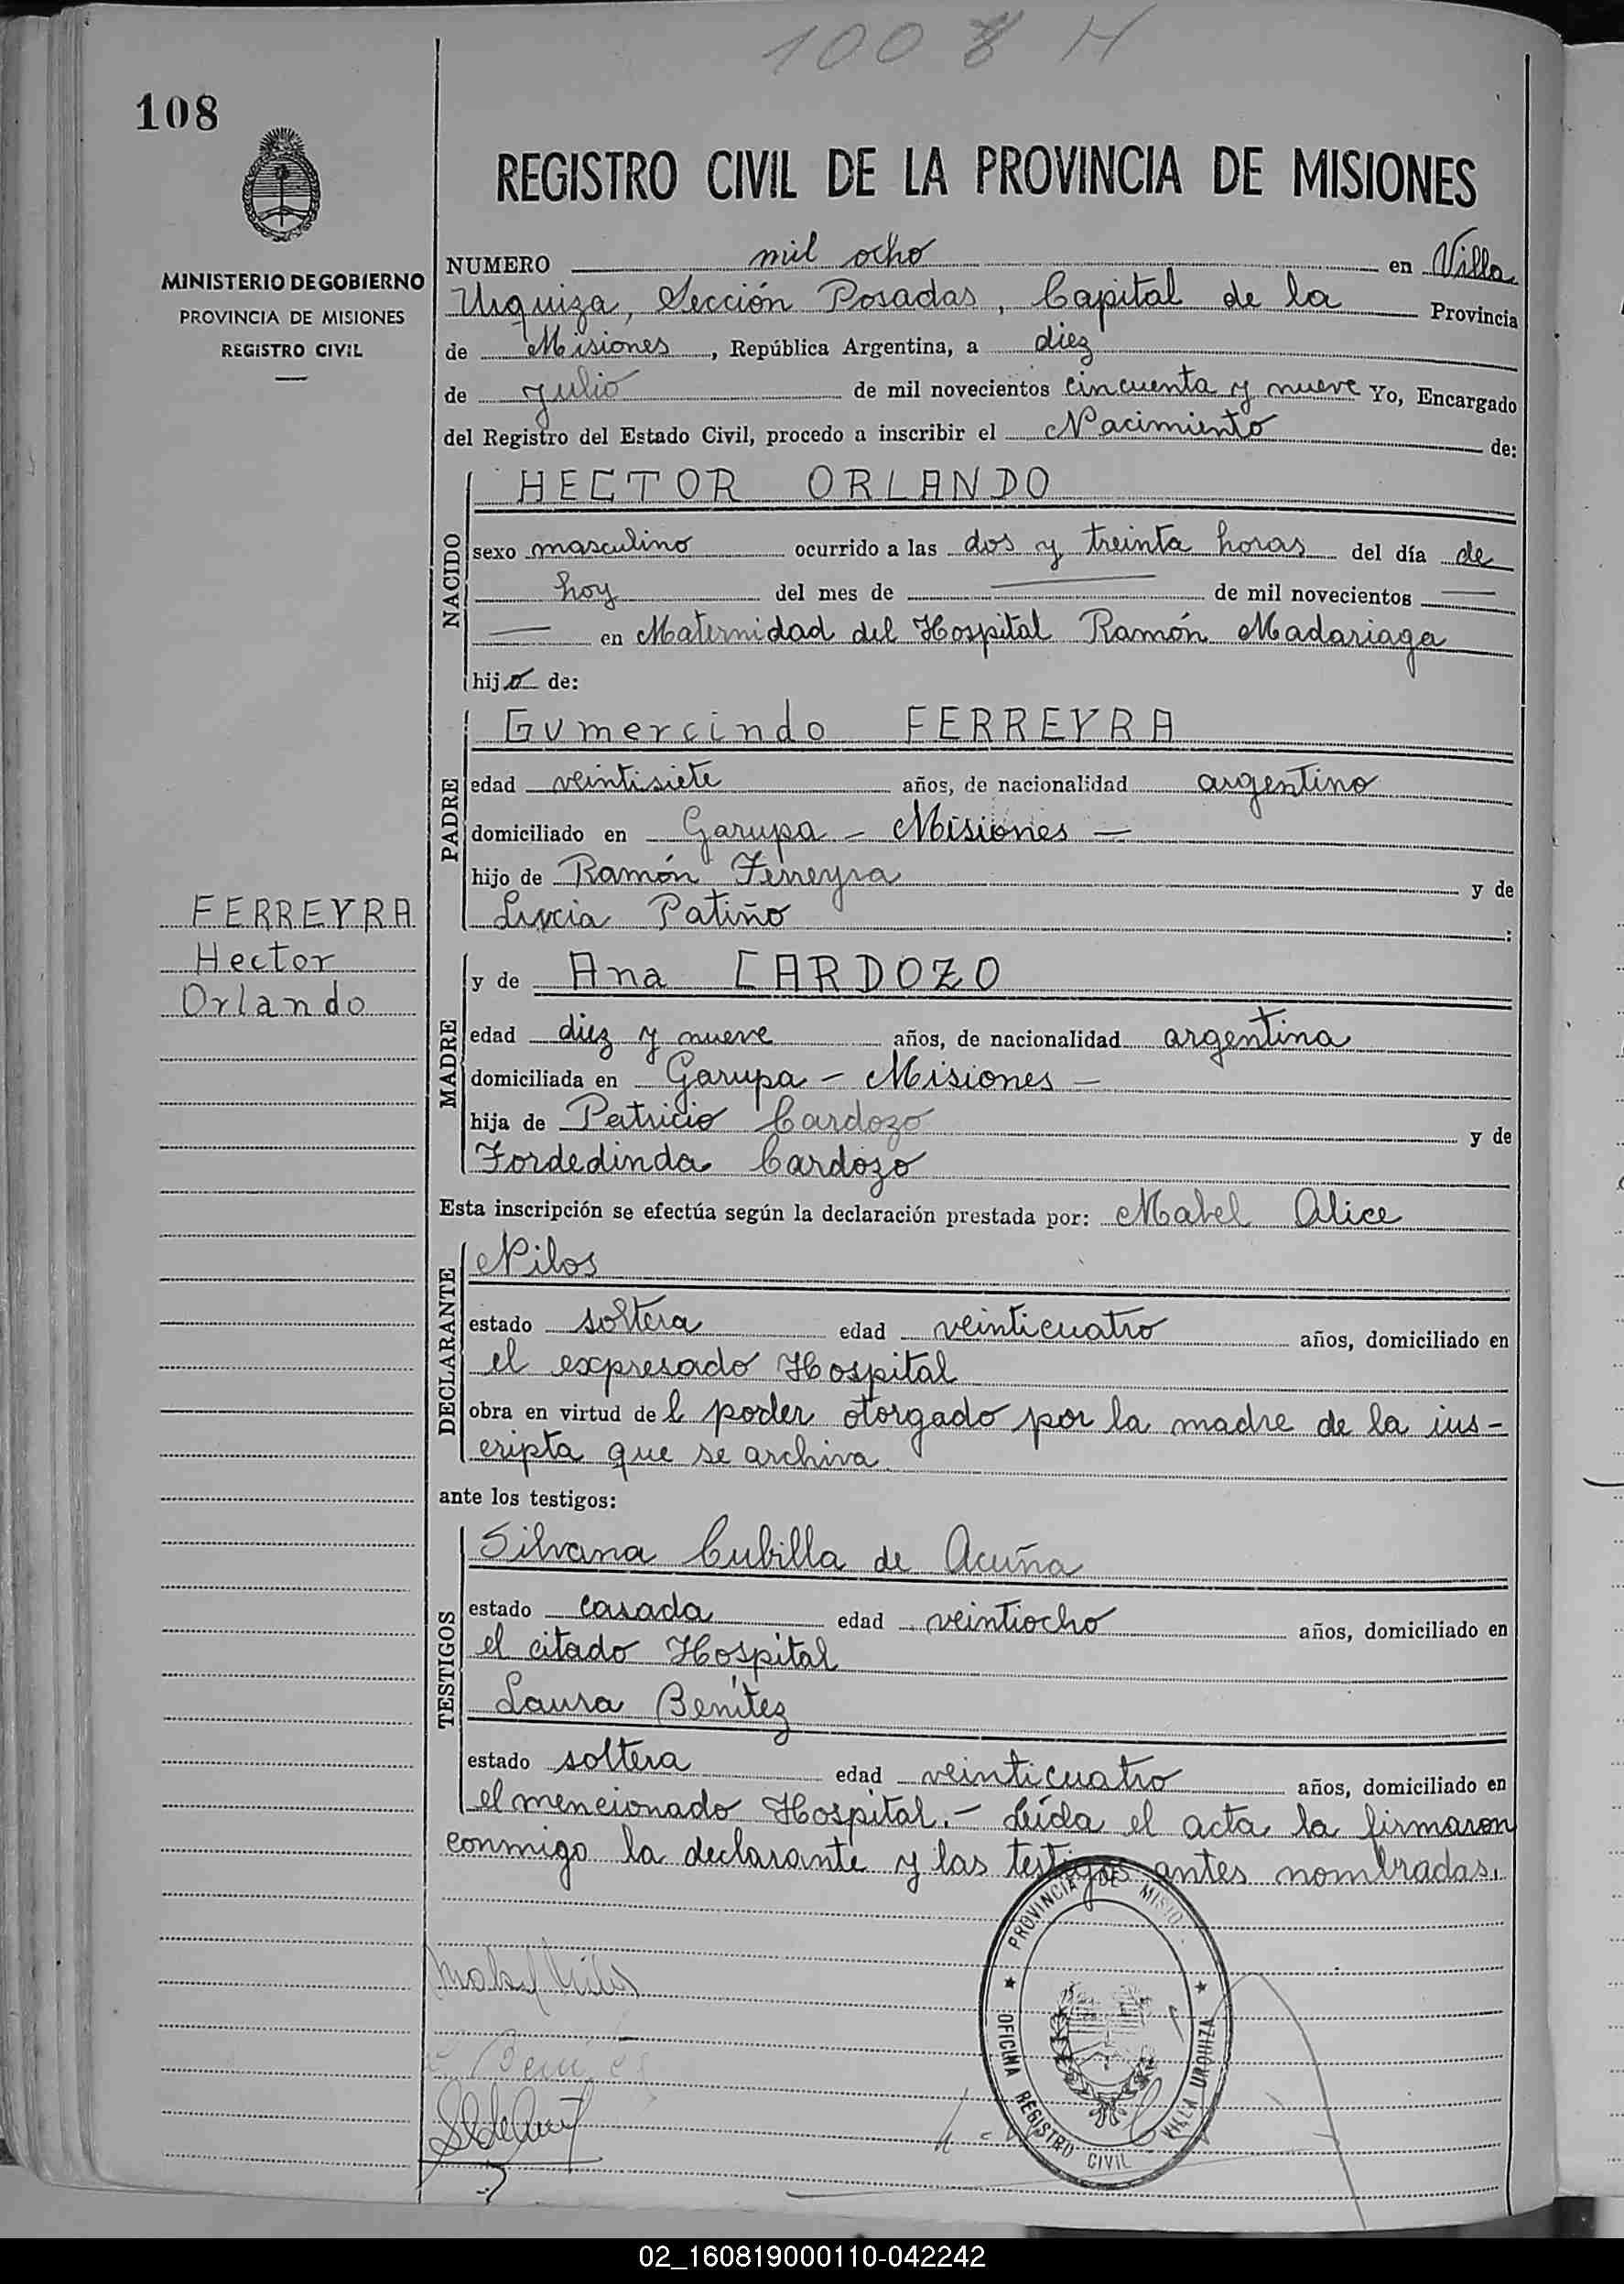 1008 H
108
REGISTRO CIVIL DE LA PROVINCIA DE MISIONES
MINISTERIO DE GOBIERNO
PROVINCIA DE MISIONES
REGISTRO CIVIL
NUMERO mil ocho en Villa
Urquiza, Sección Posadas, Capital de la Provincia
de Misiones, República Argentina, a diez
de julio de mil novecientos cincuenta y nueve Yo, Encargado
del Registro del Estado Civil, procedo a inscribir el Nacimiento de:
NACIDO
HECTOR ORLANDO
sexo masculino ocurrido a las dos y treinta horas del día de
hoy del mes de — de mil novecientos —
— en Maternidad del Hospital Ramón Madariaga
hijo de:
PADRE
Gumercindo FERREYRA
edad veintisiete años, de nacionalidad argentino
domiciliado en Garupa - Misiones -
hijo de Ramón Ferreyra y de
Lucia Patiño:
FERREYRA
Hector
Orlando
MADRE
y de Ana CARDOZO
edad diez y nueve años, de nacionalidad argentina
domiciliada en Garupa - Misiones -
hija de Patricio Cardozo y de
Fordedinda Cardozo
Esta inscripción se efectúa según la declaración prestada por: Mabel Alice
DECLARANTE
Nilos
estado soltera edad veinticuatro años, domiciliado en
el expresado Hospital
obra en virtud del poder otorgado por la madre de la ins-
cripta que se archiva
ante los testigos:
TESTIGOS
Silvana Cubilla de Acuña
estado casada edad veintiocho años, domiciliado en
el citado Hospital
Laura Benítez
estado soltera edad veinticuatro años, domiciliado en
el mencionado Hospital.- Leída el acta la firmaron
conmigo la declarante y las testigos antes nombradas.
PROVINCIA DE MISIO
OFICINA REGISTRO CIVIL
VILLA URQUIZA
Mabel Nilos
02_160819000110-042242